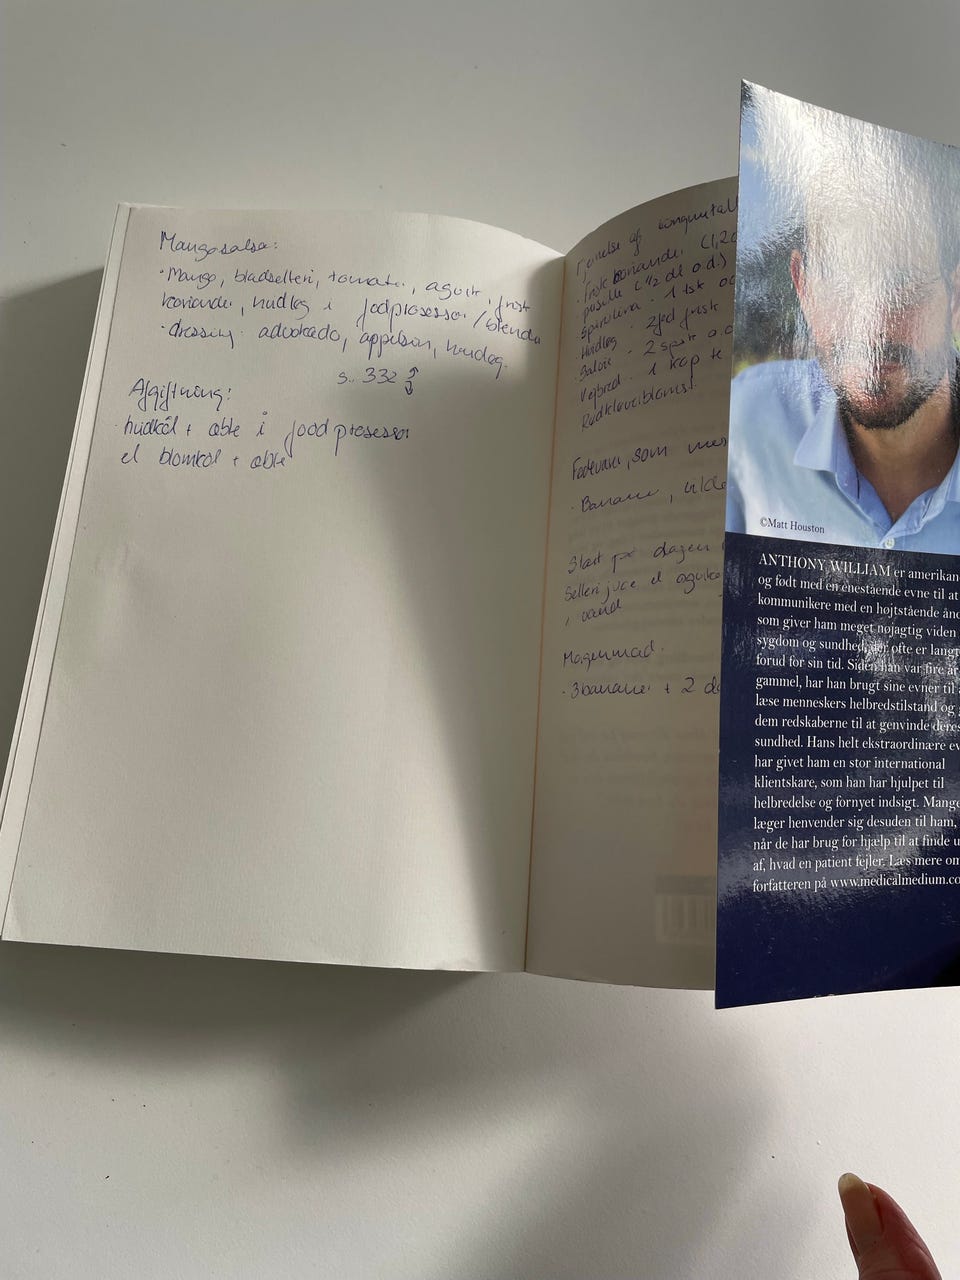 Mangosalsa:
· Mango, bladselleri, tomater, agurk, frisk
koriander, hvidløg i foodprosessor/blender
· dressing: advokado, appelsin, hvidløg.
s. 332
Afgiftning:
hvidkål + æble i foodprosessor
el blomkål + æble
Fjernelse af
· Frisk koriander (1,2
persille (1/2 dl o.d.)
Spirulina · 1 tsk
Hvidløg · 2 fed frisk
· Salvie · 2 spsk o.d
Vejbred · 1 kop te
Rødkløverblomst
Fødevarer, som
· Bananer, vilde
Start på dagen
Selleri juce el agurke
, vand
Morgenmad.
· 3 bananer + 2
©Matt Houston
ANTHONY WILLIAM er amerikan
og født med en enestående evne til at
kommunikere med en højtstående ån
som giver ham meget nøjagtig viden
sygdom og sundhed, der ofte er langt
forud for sin tid. Siden han var fire år
gammel, har han brugt sine evner til
læse menneskers helbredstilstand og
dem redskaberne til at genvinde deres
sundhed. Hans helt ekstraordinære ev
har givet ham en stor international
klientskare, som han har hjulpet til
helbredelse og fornyet indsigt. Mange
læger henvender sig desuden til ham,
når de har brug for hjælp til at finde u
af, hvad en patient fejler. Læs mere om
forfatteren på www.medicalmedium.co